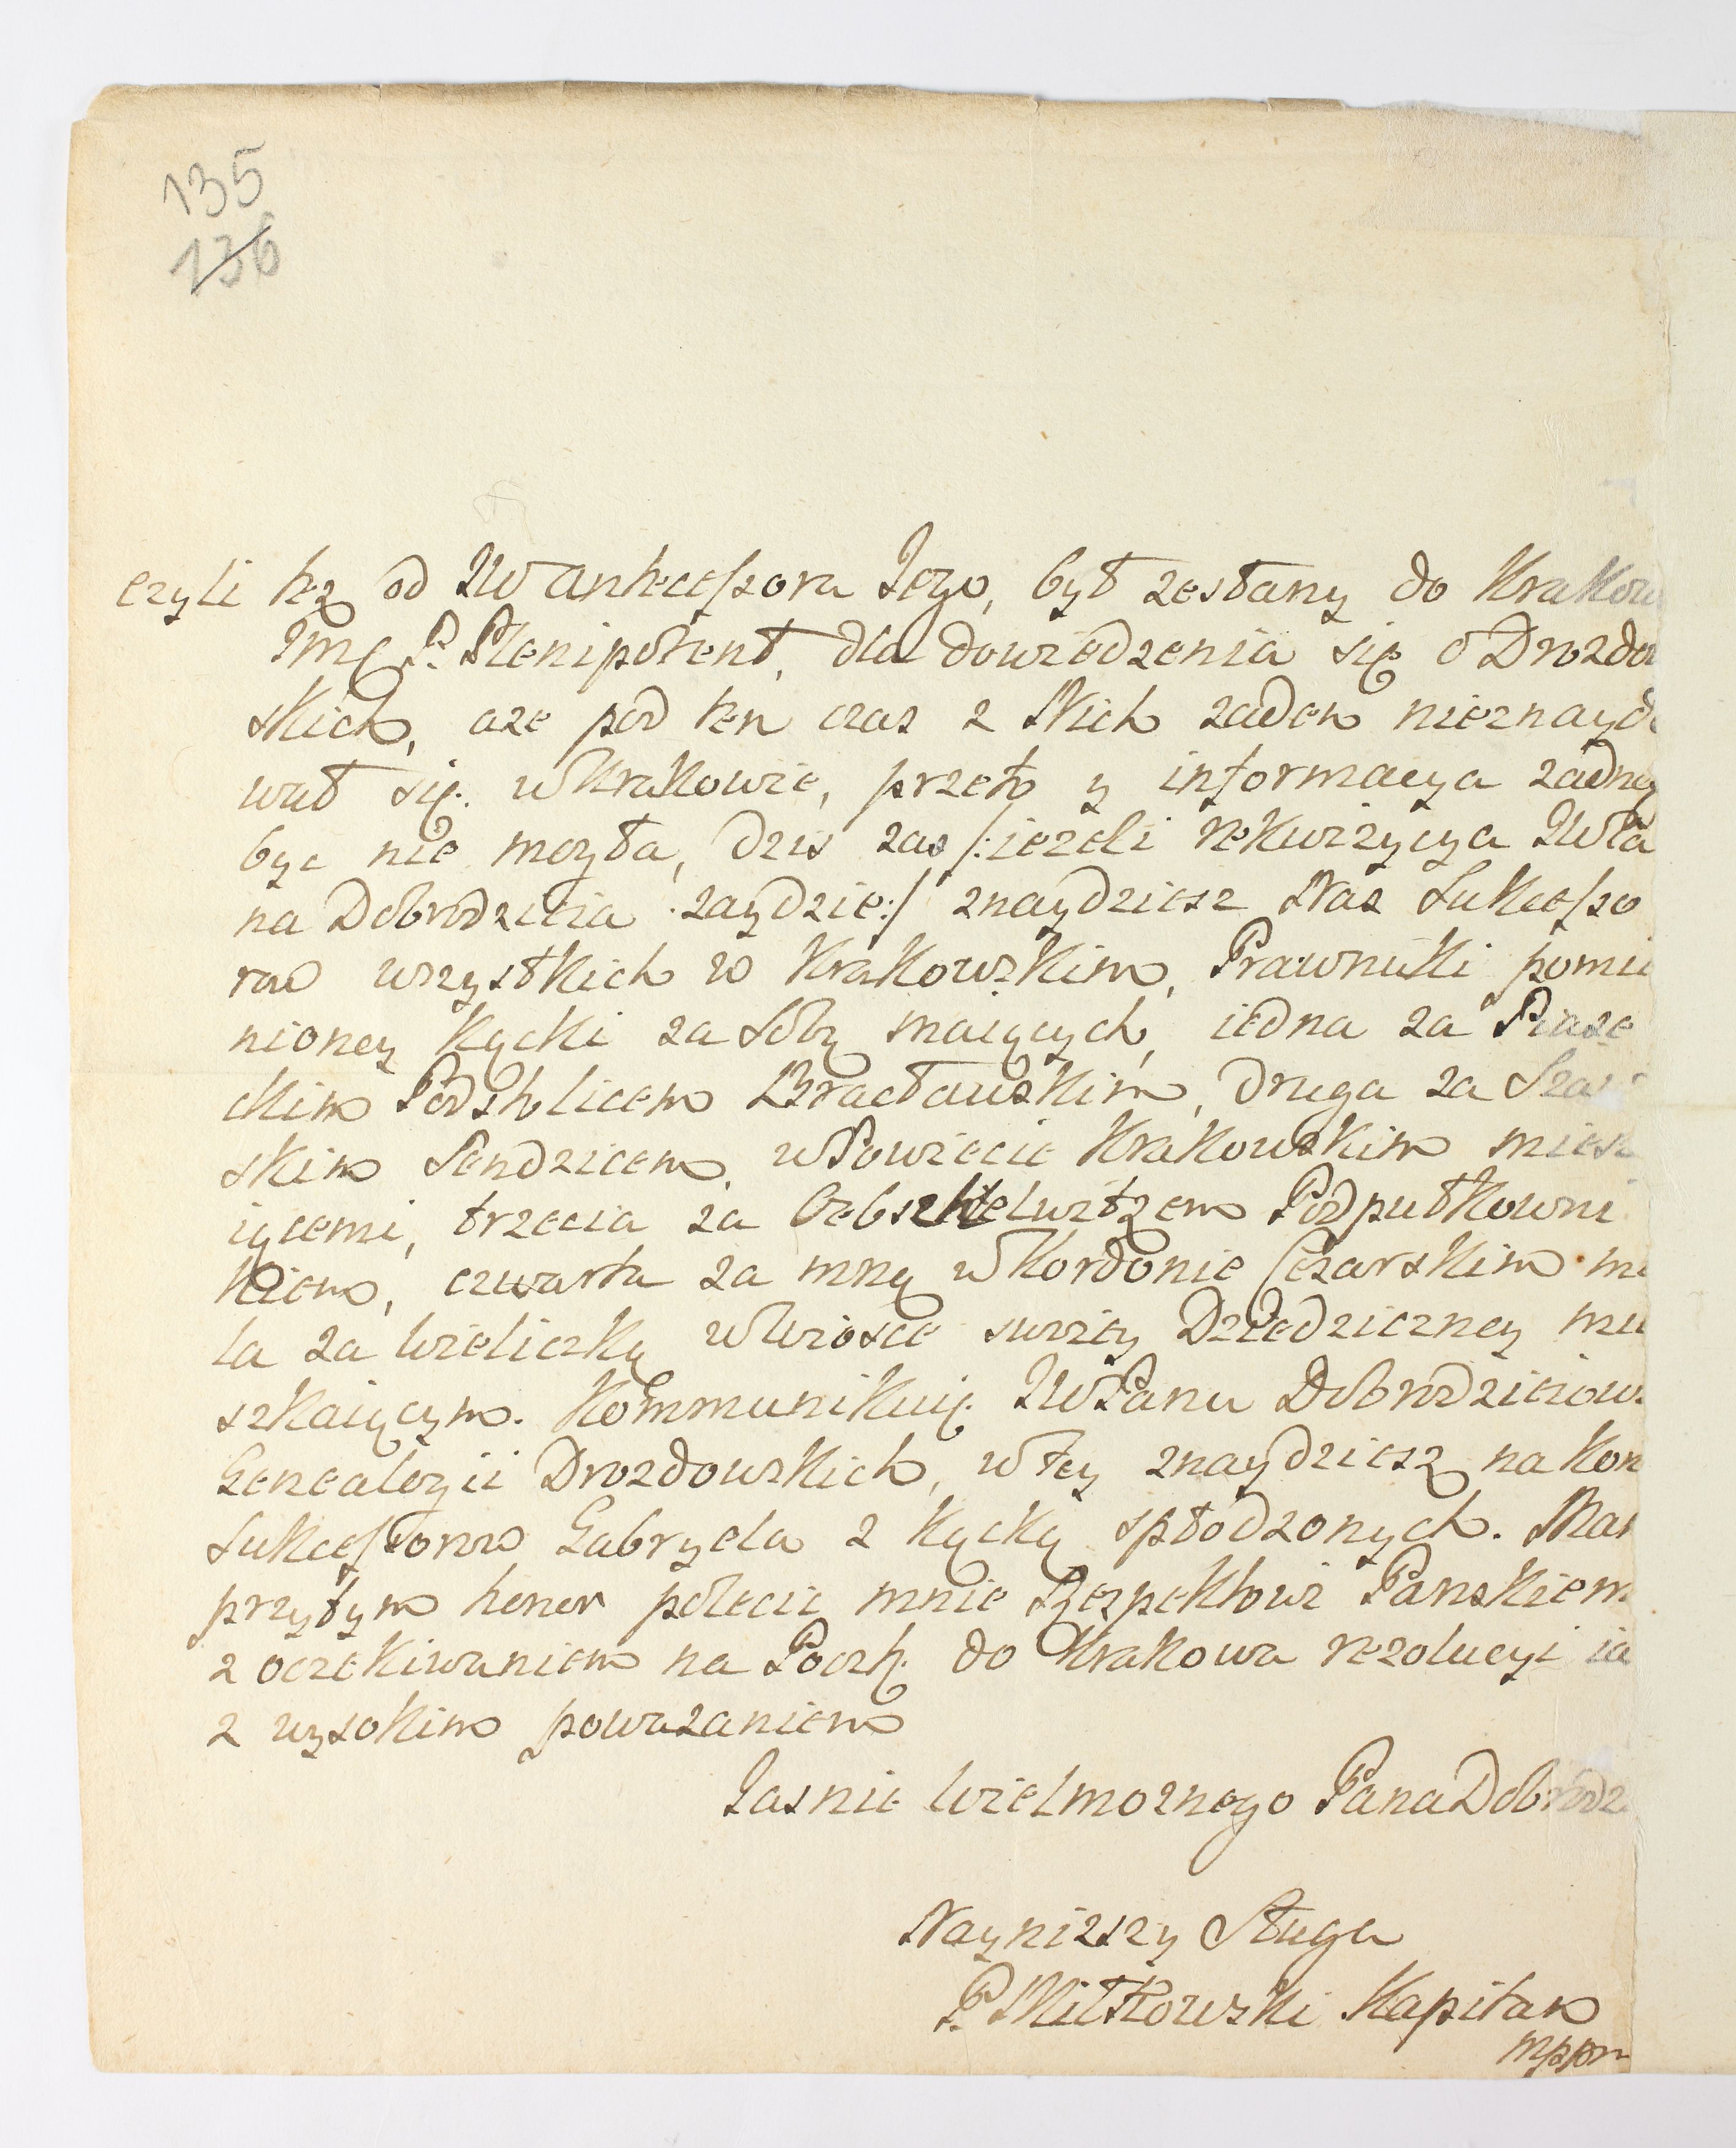 135
136
czyli tez od JW Antecessora Jego, był zesłany do Krakow
Jmć P. Plenipotent, dla dowiedzenia się o Drozdow
skich, aze pod ten czas z Nich zaden nieznaydo
wał się w Krakowie, przeto y informacya zadną
byc nie mogła, dzis zas /:iezeli rekwizycya JWPa
na Dobrodzieia zaydzie:/ znaydziesz Nas Sukcesso
row wszystkich w Krakowskim, Prawnuki pomie
nioney Kącki za sobą maiących, iedna za Piase
ckim Podstolicem Bracławskim, druga za
skim Sendzicem, w Powiecie Krakowskim miesz
iącemi, trzecia za Podpułkowni
kiem, czwarta za mną w Kordonie Cesarskim mi
la za Wieliczką w Wiosce swoiey Dziedziczney mie
szkaiącym. Kommunikuię JWPanu Dobrodzieiow
Genealogii Drozdowskich, w tey znaydziesz na kon
Sukcessorow Gabryela z Kącką spłodzonych. Mam
przytym honor polecic mnie Respektowi Panskiem
z oczekiwaniem na Pocztę do Krakowa rezolucyi ia
z wysokim powazaniem
Jasnie Wielmoznego Pana Dobrodz
Naynizszy Sługa
P. Miłkowski Kapitan
mppr